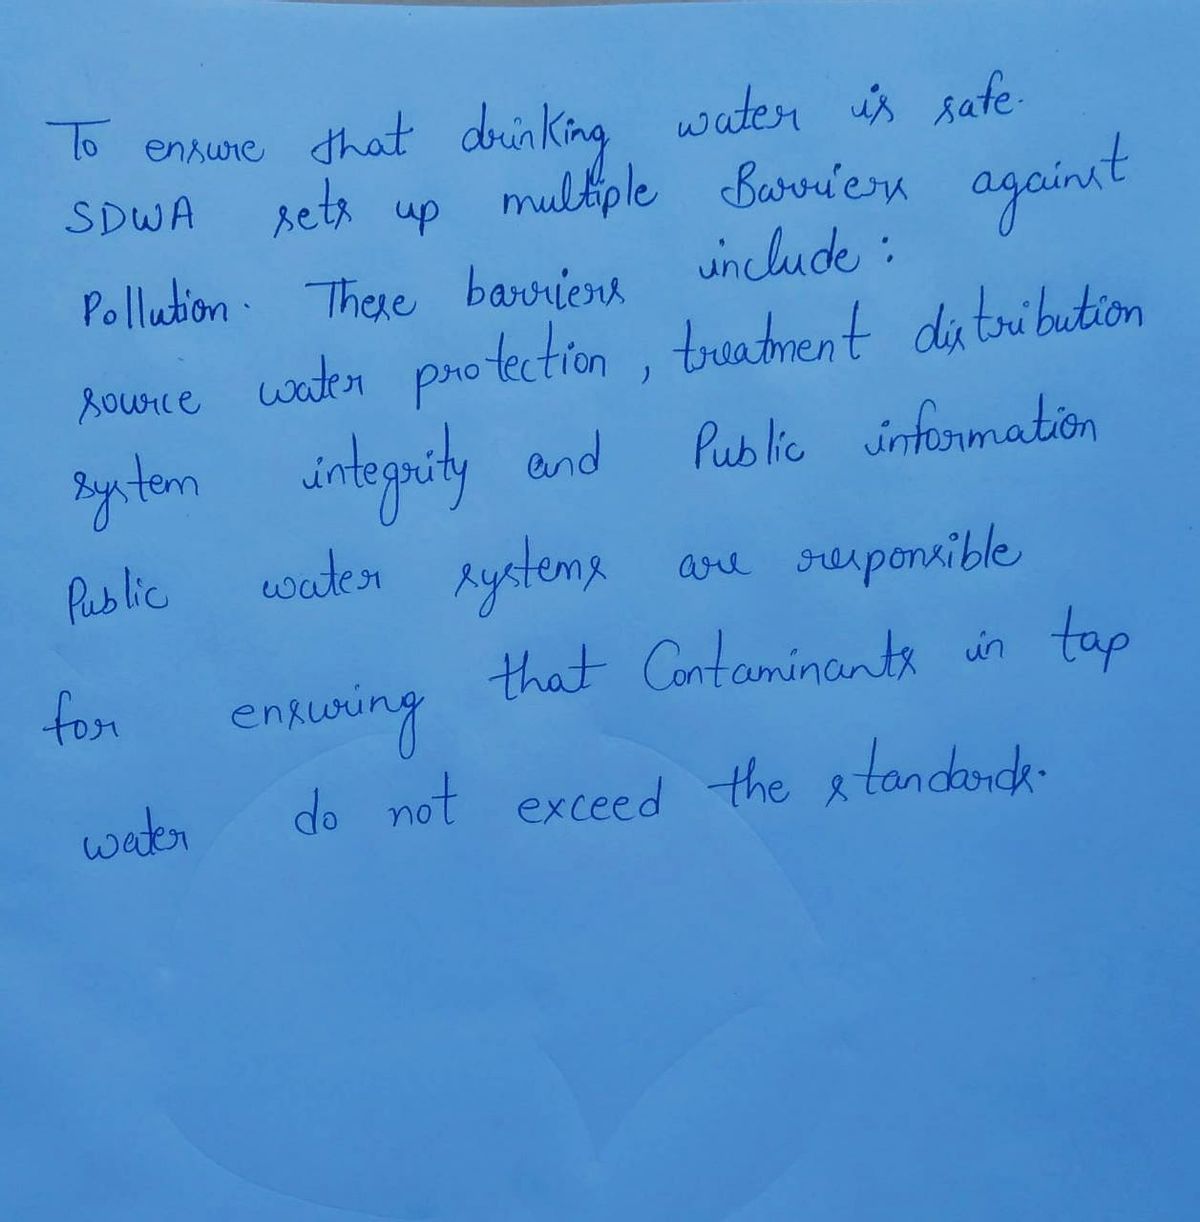 To ensure that drinking water is safe.
SDWA sets up multiple Barriers against
Pollution. These barriers include :
source water protection , treatment distribution
system integrity and Public information
Public water systems are responsible
for ensuring that Contaminants in tap
water do not exceed the standards.